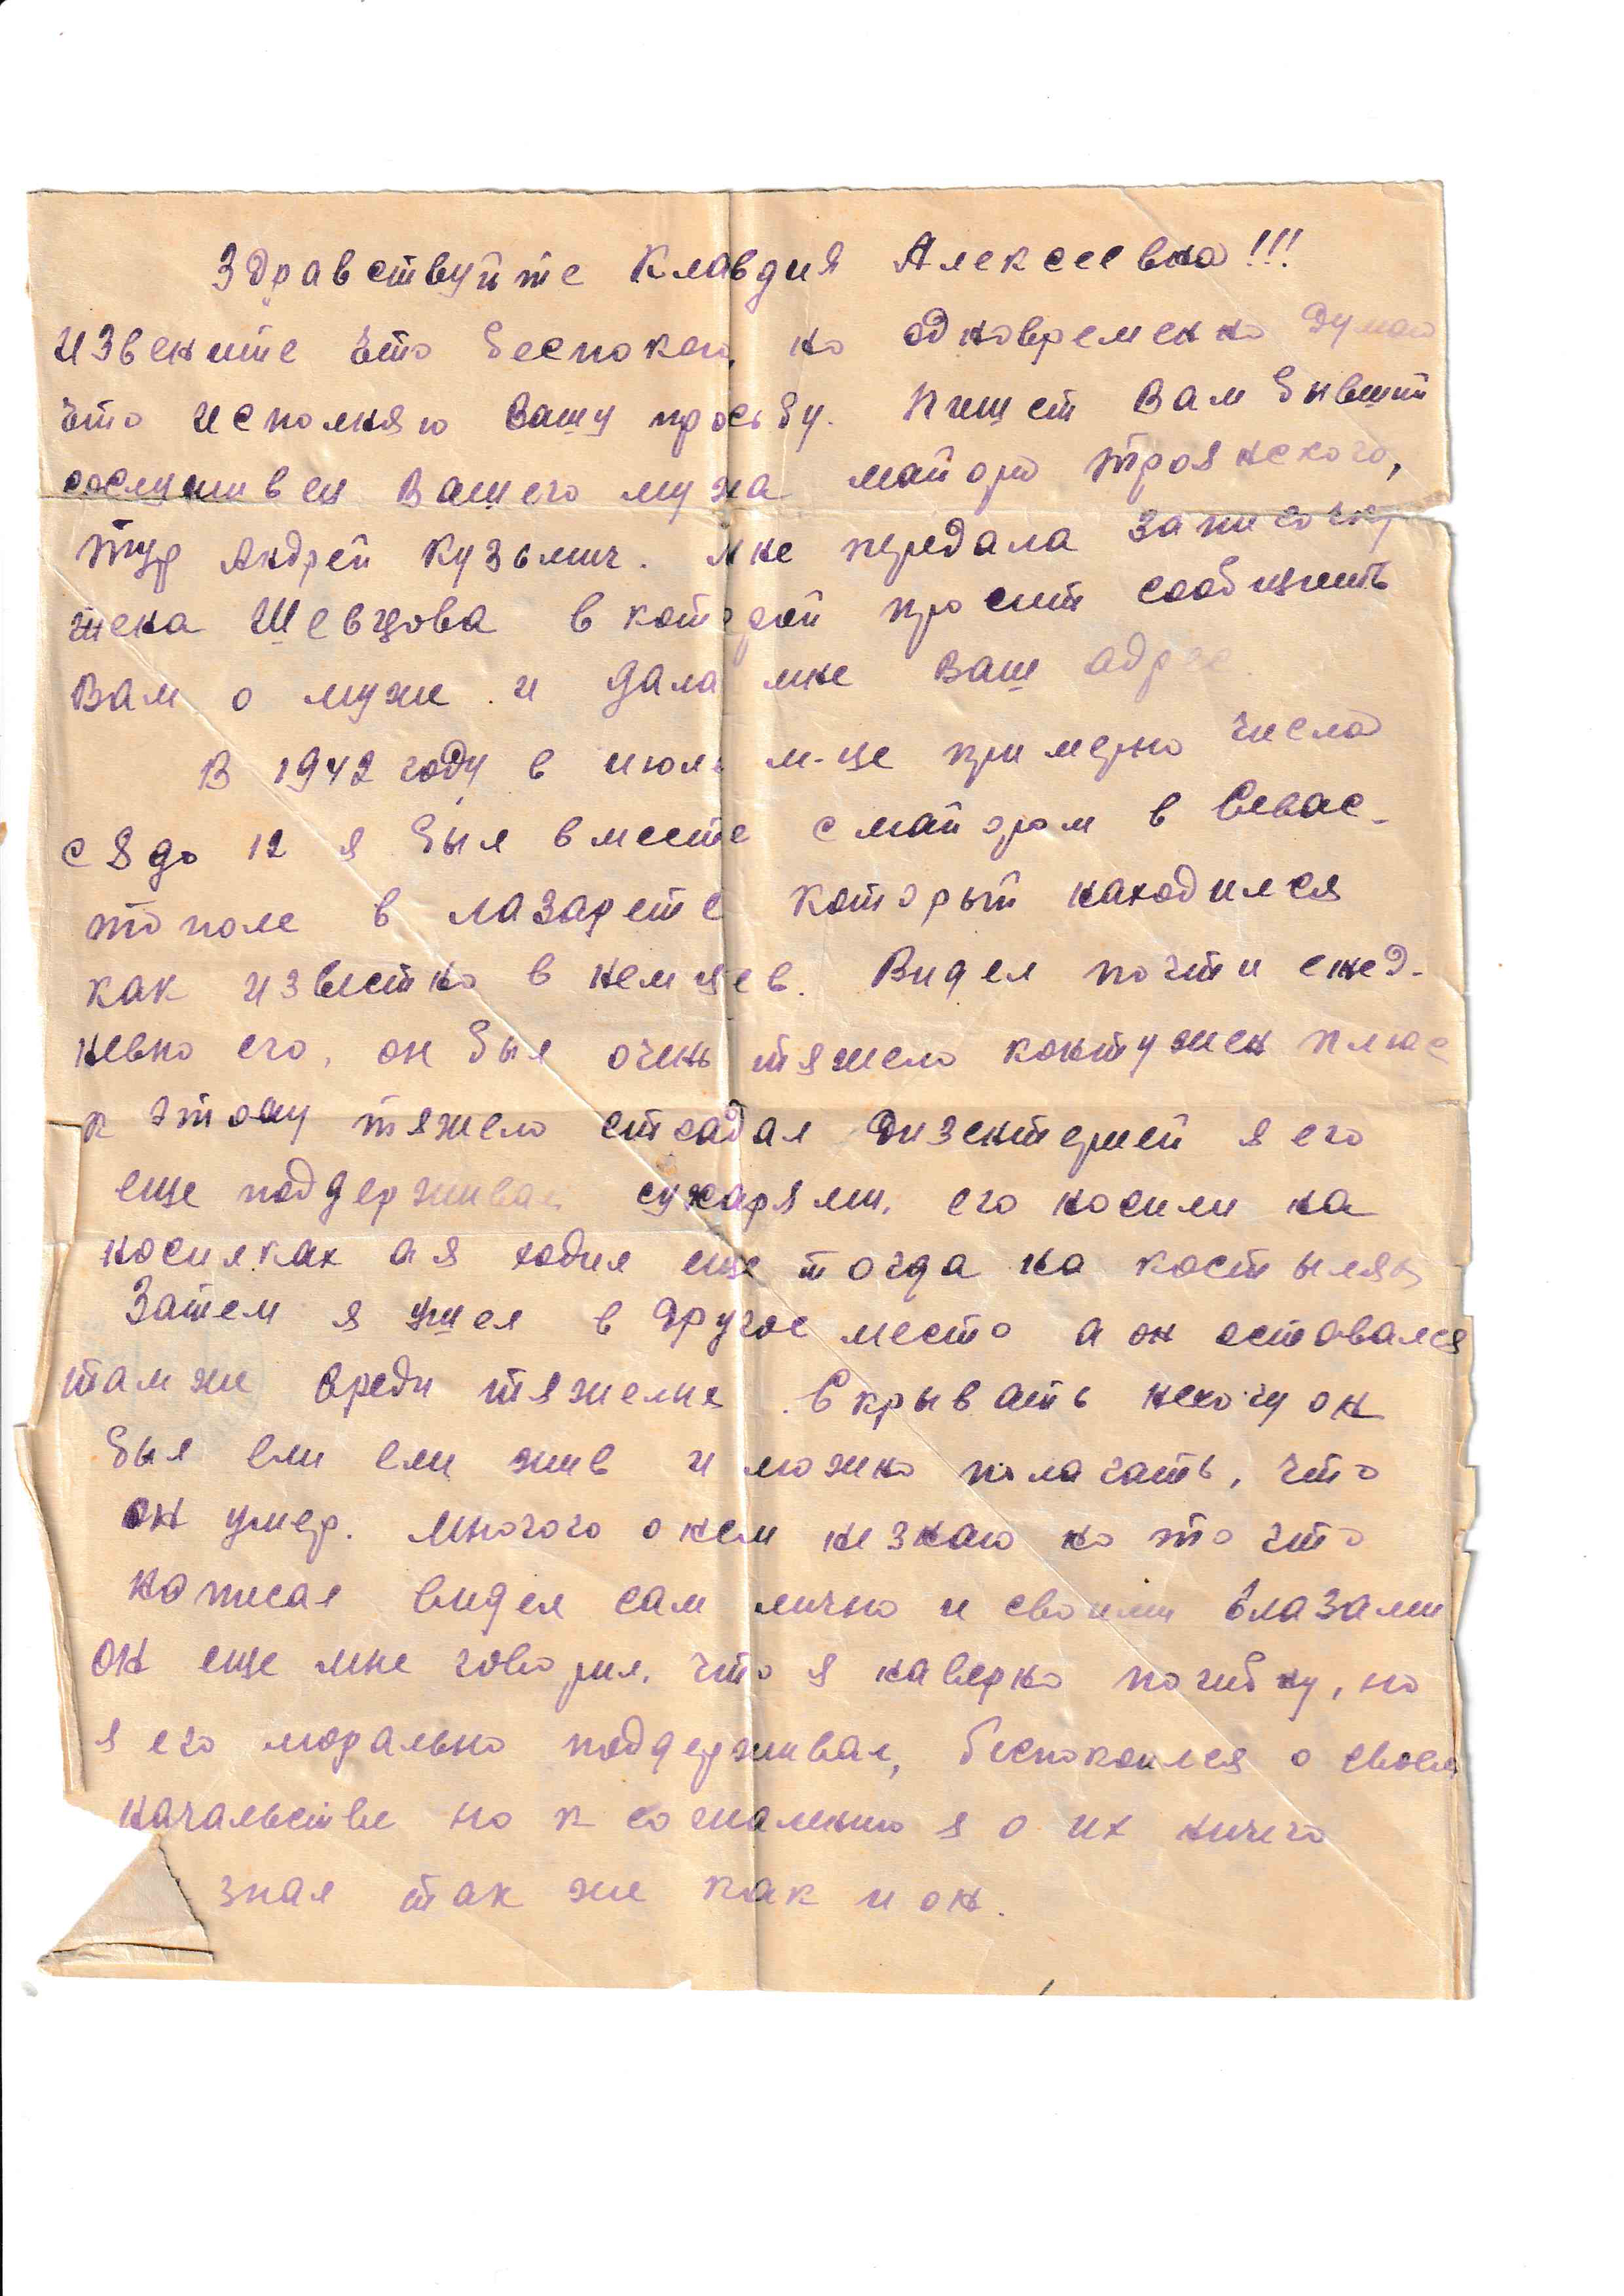 Здравствуйте Клавдия Алексеевна!!!
извените что беспокою, но одновременно думаю
что исполняю Вашу просьбу. Пишет Вам бывший
сослуживец Вашего мужа майора Троянского,
Тур Андрей Кузьмич. Мне передала записочку
жена Шевцова в которой просит сообщить
Вам о муже и дала мне Ваш адрес.
В 1942 году в июль м-це примерно числа
с 8 до 12 я был вместе с майором в Севас-
тополе в лазарете который находился
как известно в немцев. Видел почти ежед-
невно его, он был очень тяжело контужен плюс
к этому тяжело страдал дизентерией я его
еще поддерживал сухарями, его носили на
носилках а я ходил еще тогда на костылях
Затем я ушел в другое место а он оставался
там же среди тяжелых. Скрывать нехочу он
был ели ели жив и можно полагать, что
он умер. Много о нем незнаю но то что
написал видел сам лично и своими глазами
он еще мне говорил, что я наверно погибну, но
я его морально поддерживал, беспокоился о своем
начальстве но к сожалению я о их ничего
знал так же как и он.